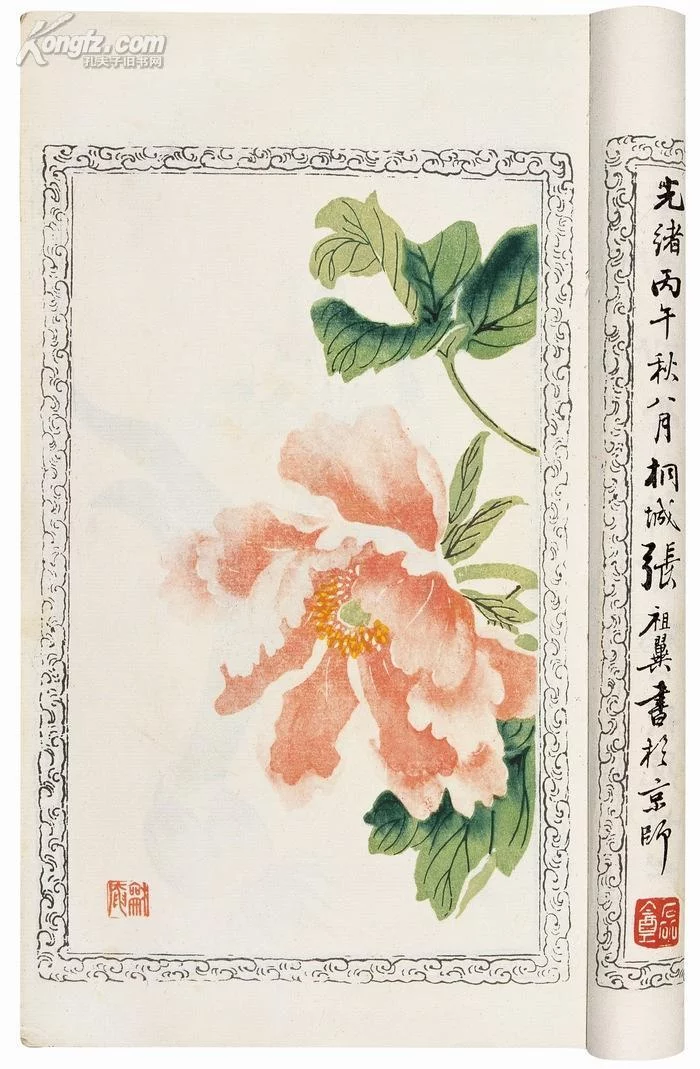 Kongfz.com
孔夫子旧书网
光緒丙午秋八月桐城張祖翼書於京師